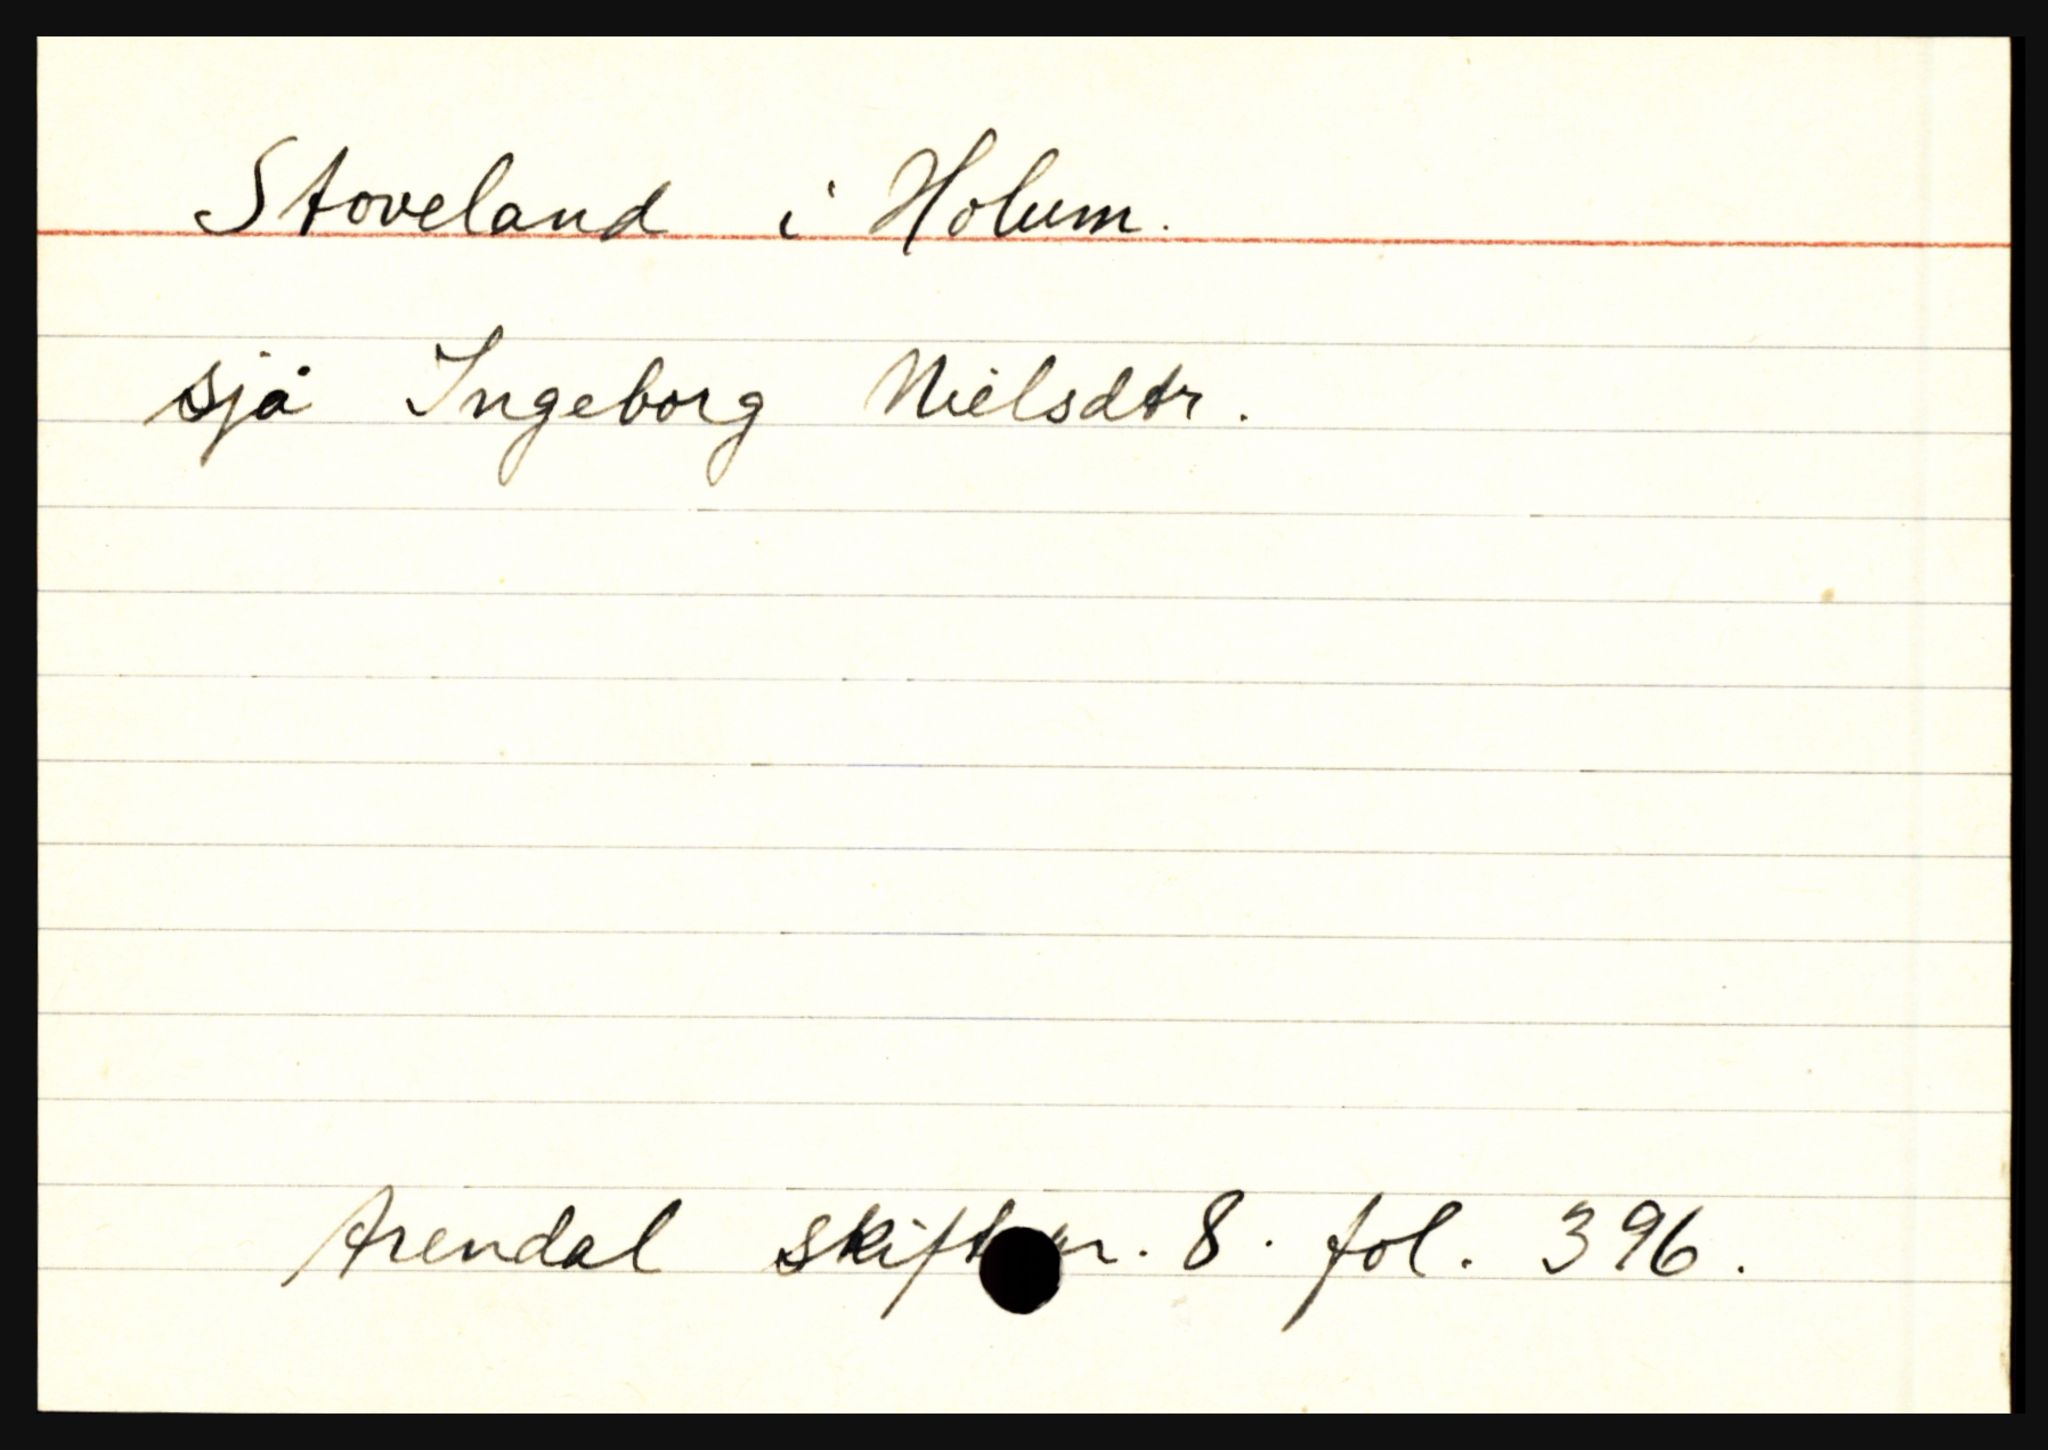 Stoveland i Holum.
sjå Ingeborg Nielsdtr.
Arendal skift nr. 8. fol. 396.